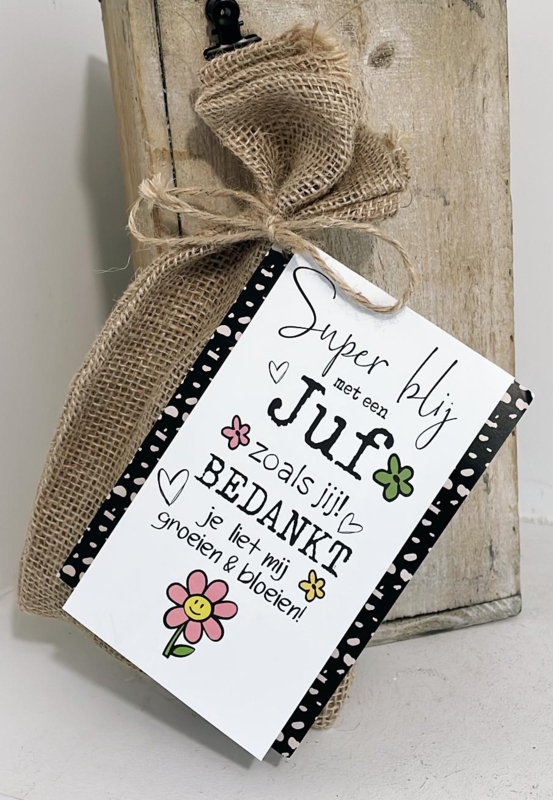 Super blij
met een
Juf
zoals jij!
BEDANKT
je liet mij
groeien & bloeien!